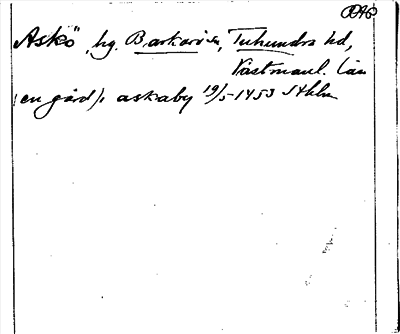 Askö, hg. Barkarö sn, Tuhundra hd,
Västmanl. län
(en gård): askaby 19/5 1453 Sthlm